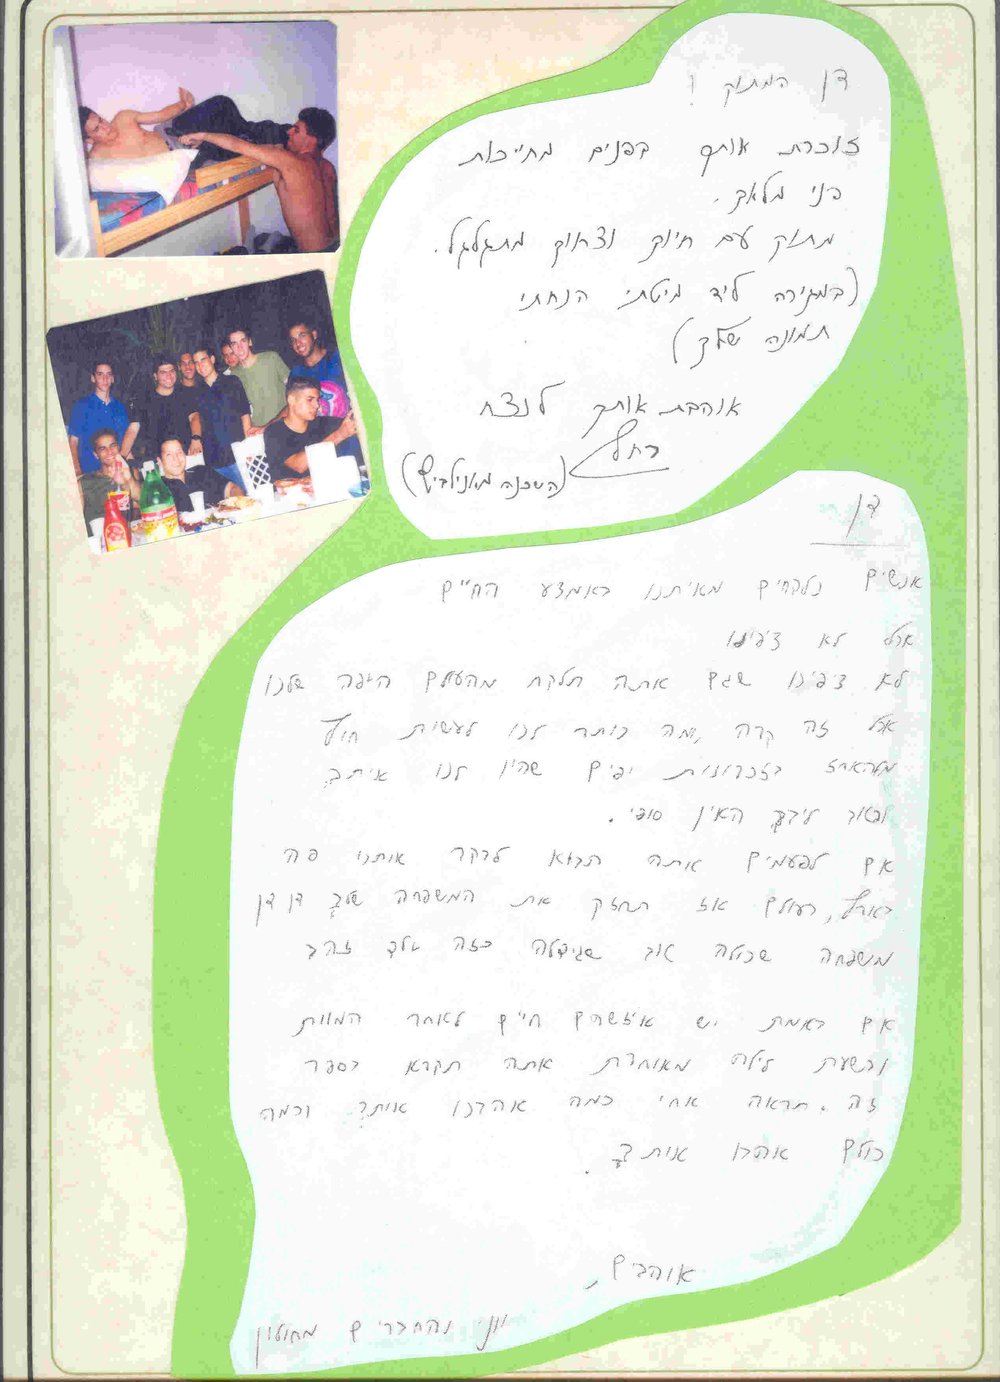 דן המתוק !
זוכרת אותך בפנים מחייכות
פני מלאך.
מתוק עם חיוך וצחוק מתגלגל.
(במגירה ליד מיטתי הנחתי
תמונה שלך)
אוהבת אותך לנצח
רחל
(השכנה מאנילביץ')
דן
אנשים נלקחים מאיתנו באמצע החיים
אבל לא ציפינו
לא ציפינו שגם אתה תלקח מהעולם היפה שלנו
אבל זה קרה, מה נותר לנו לעשות חוץ
מלהאחז בזכרונות יפים שהיו לנו איתך
ליבך האין סופי.
אם לפעמים אתה תבוא לבקר אותנו פה
בארץ, בעולם אז תחזק את המשפחה שלך דן דן
משפחה שכולה אור שגידלה כזה ילד זהב
אם באמת יש איזשהם חיים לאחר המוות
ובשעת לילה מאוחרת אתה תקרא בספר
זה. תראה אחי כמה אהבנו אותך וכמה
כולם אהבו אותך.
אוהבים,
יוני והחברים מחולון